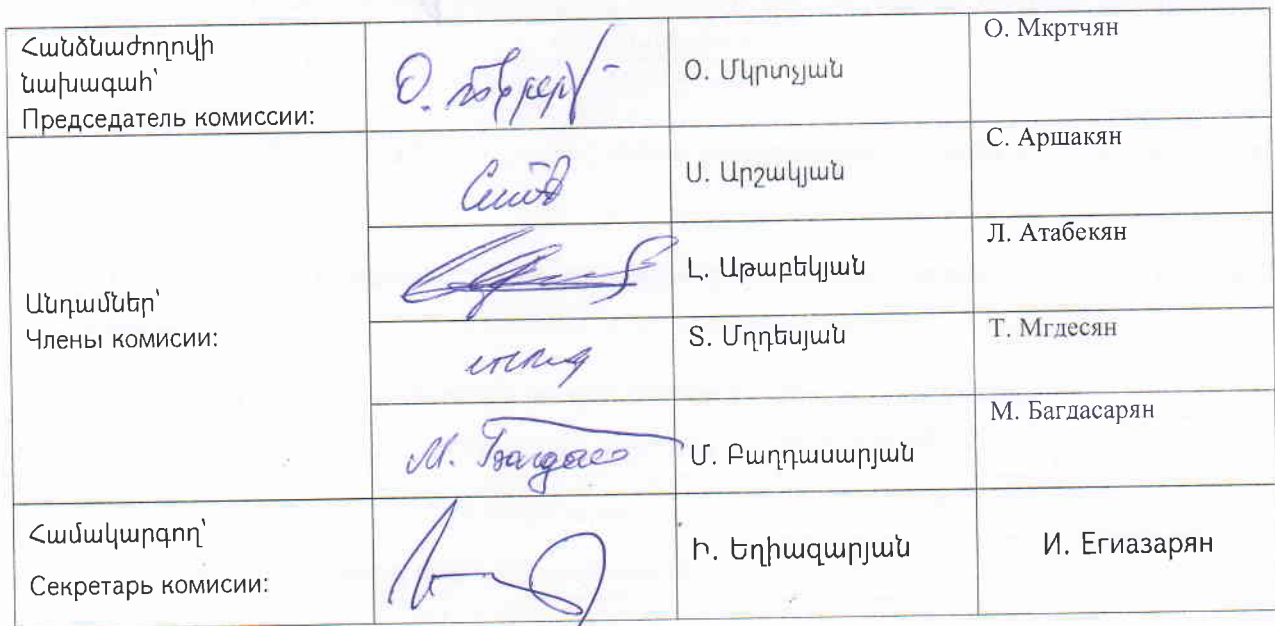 Հանձնաժողովի
նախագահ՝
Председатель комиссии:
О. Մկրտչյան
О. Мкртчян
Անդամներ՝
Члены комисии:
Ս. Արշակյան
С. Аршакян
Լ. Աթաբեկյան
Л. Атабекян
Տ. Մղդեսյան
Т. Мгдесян
М.
Մ. Բաղդասարյան
М. Багдасарян
Համակարգող՝
Секретарь комисии:
Ի. Եղիազարյան
И. Егиазарян